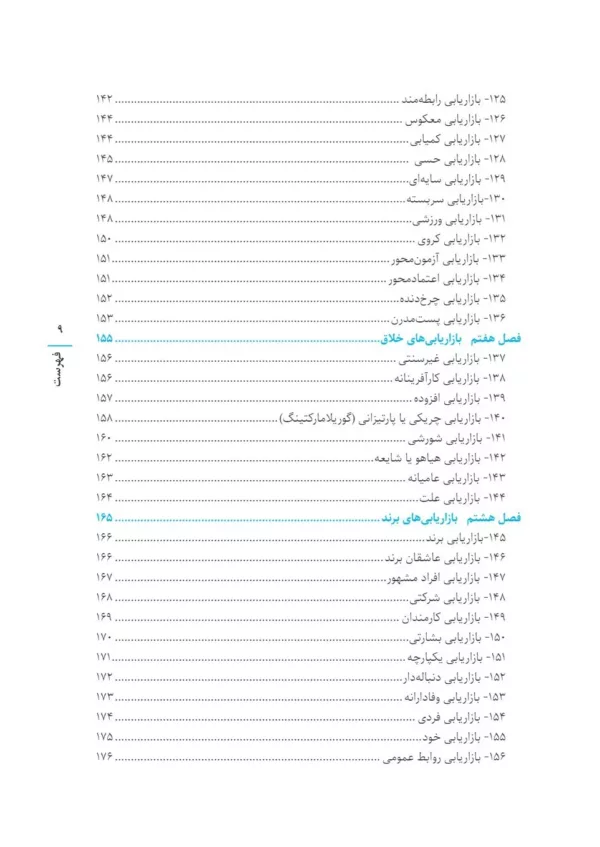 ۱۲۵- بازاریابی رابطه‌مند ........................................ ۱۴۲
۱۲۶- بازاریابی معکوس ........................................ ۱۴۴
۱۲۷- بازاریابی کمیابی ........................................ ۱۴۴
۱۲۸- بازاریابی حسی ........................................ ۱۴۵
۱۲۹- بازاریابی سایه‌ای ........................................ ۱۴۷
۱۳۰-بازاریابی سربسته ........................................ ۱۴۸
۱۳۱- بازاریابی ورزشی ........................................ ۱۴۸
۱۳۲- بازاریابی کروی ........................................ ۱۵۰
۱۳۳- بازاریابی آزمون‌محور ........................................ ۱۵۱
۱۳۴- بازاریابی اعتمادمحور ........................................ ۱۵۱
۱۳۵- بازاریابی چرخ‌دنده ........................................ ۱۵۲
۱۳۶- بازاریابی پست‌مدرن ........................................ ۱۵۳
فصل هفتم بازاریابی‌های خلاق ........................................ ۱۵۵
۱۳۷- بازاریابی غیرسنتی ........................................ ۱۵۶
۱۳۸- بازاریابی کارآفرینانه ........................................ ۱۵۶
۱۳۹- بازاریابی افزوده ........................................ ۱۵۷
۱۴۰- بازاریابی چریکی یا پارتیزانی (گوریلامارکتینگ) ........................................ ۱۵۸
۱۴۱- بازاریابی شورشی ........................................ ۱۶۰
۱۴۲- بازاریابی هیاهو یا شایعه ........................................ ۱۶۲
۱۴۳- بازاریابی عامیانه ........................................ ۱۶۳
۱۴۴- بازاریابی علت ........................................ ۱۶۴
فصل هشتم بازاریابی‌های برند ........................................ ۱۶۵
۱۴۵-بازاریابی برند ........................................ ۱۶۶
۱۴۶- بازاریابی عاشقان برند ........................................ ۱۶۶
۱۴۷- بازاریابی افراد مشهور ........................................ ۱۶۷
۱۴۸- بازاریابی شرکتی ........................................ ۱۶۸
۱۴۹- بازاریابی کارمندان ........................................ ۱۶۹
۱۵۰- بازاریابی بشارتی ........................................ ۱۷۰
۱۵۱- بازاریابی یکپارچه ........................................ ۱۷۱
۱۵۲- بازاریابی دنباله‌دار ........................................ ۱۷۲
۱۵۳- بازاریابی وفادارانه ........................................ ۱۷۳
۱۵۴- بازاریابی فردی ........................................ ۱۷۴
۱۵۵- بازاریابی خود ........................................ ۱۷۵
۱۵۶- بازاریابی روابط عمومی ........................................ ۱۷۶
فهرست